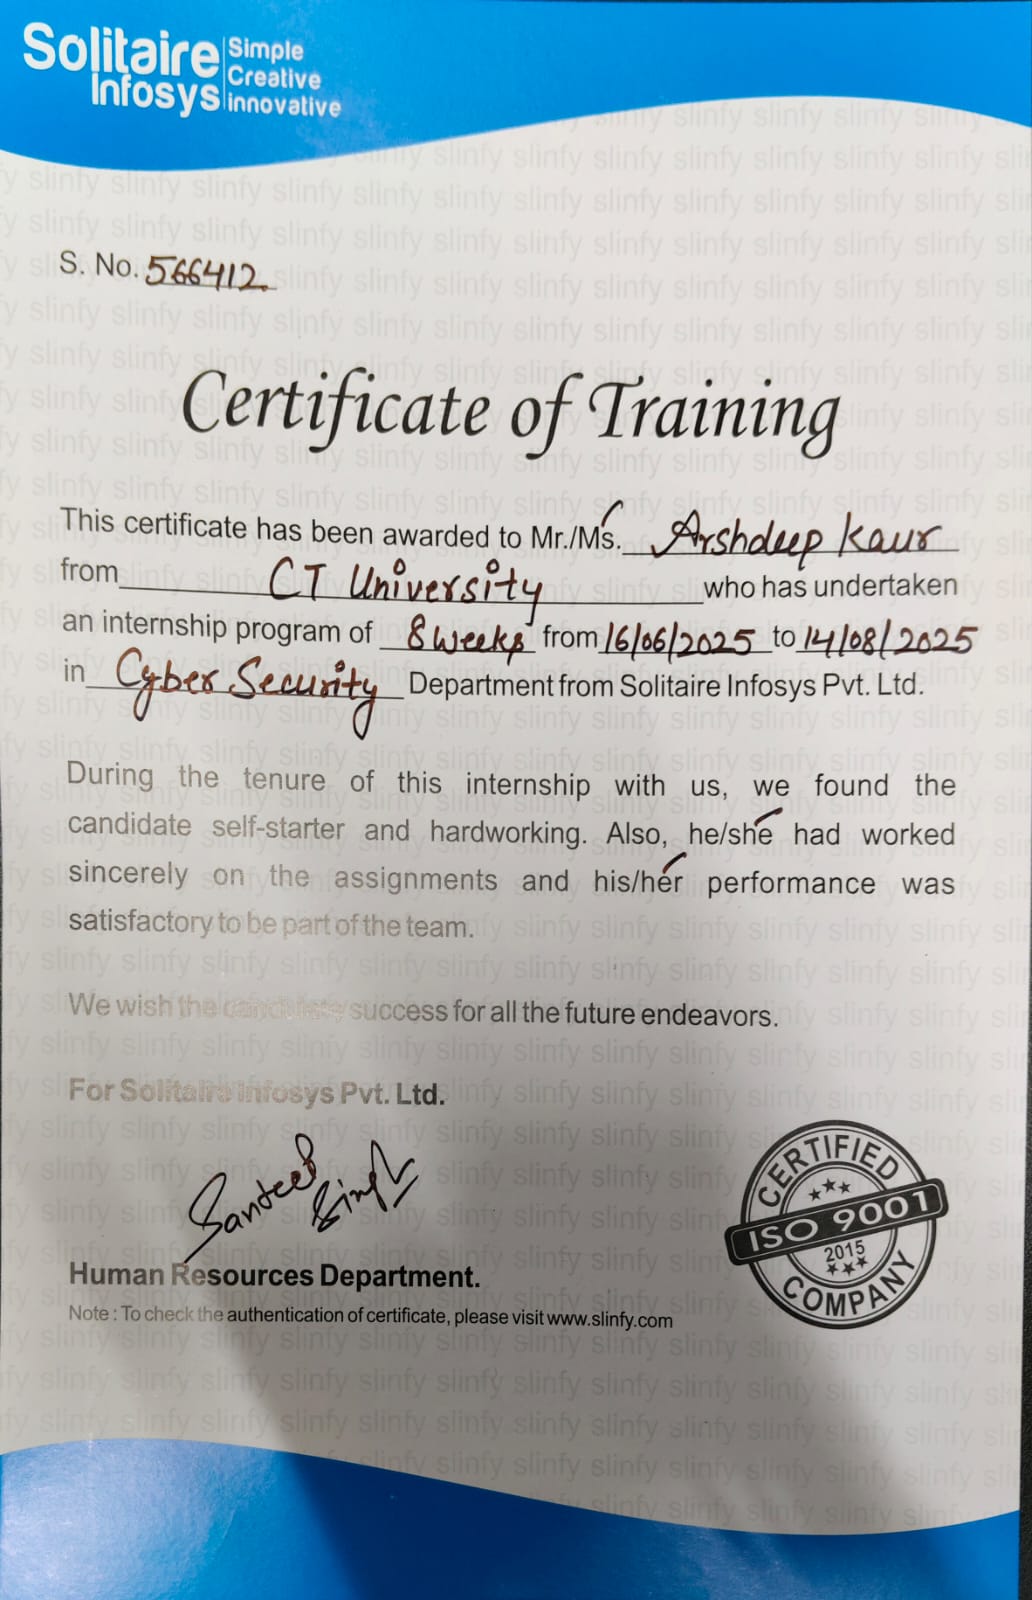 Solitaire
Infosys
Simple
Creative
innovative
S. No. 566412
Certificate of Training
This certificate has been awarded to Mr./Ms. Arshdeep Kaur
from CT University who has undertaken
an internship program of 8 weeks from 16/06/2025 to 14/08/2025
in Cyber Security Department from Solitaire Infosys Pvt. Ltd.
During the tenure of this internship with us, we found the
candidate self-starter and hardworking. Also, he/she had worked
sincerely on the assignments and his/her performance was
satisfactory to be part of the team.
We wish the candidate success for all the future endeavors.
For Solitaire Infosys Pvt. Ltd.
Sandeep
Singh
Human Resources Department.
Note : To check the authentication of certificate, please visit www.slinfy.com
CERTIFIED
ISO 9001
2015
COMPANY